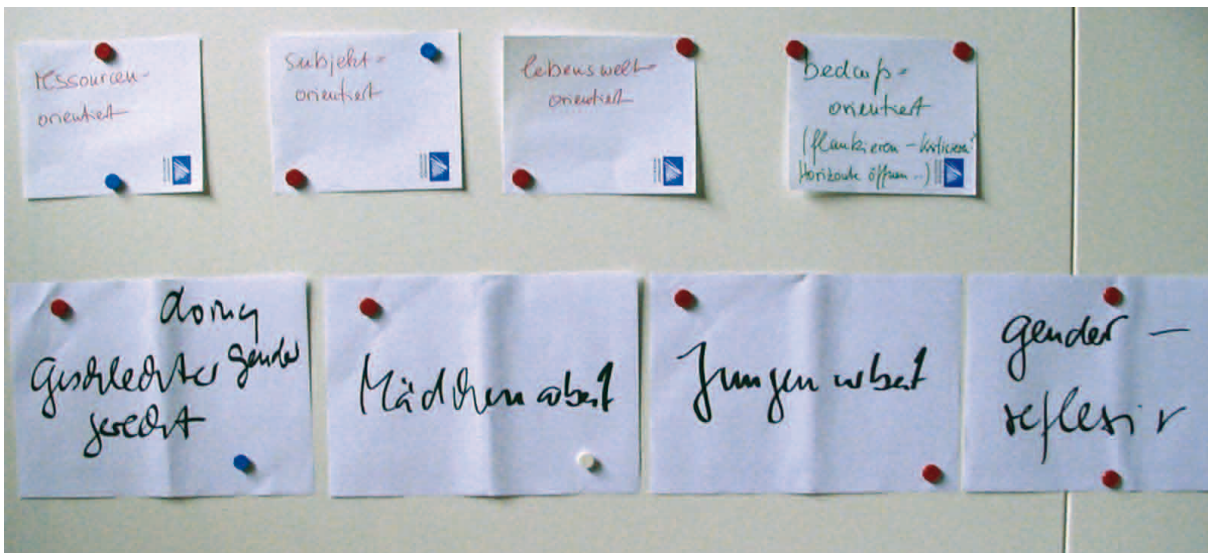 ressourcen-
orientiert
subjekt-
orientiert
lebenswelt-
orientiert
bedarfs-
orientiert
(flankieren - kritisieren
Horizonte öffnen ...)
doing
Geschlechter gender
gerecht
Mädchenarbeit
Jungenarbeit
gender -
reflexiv